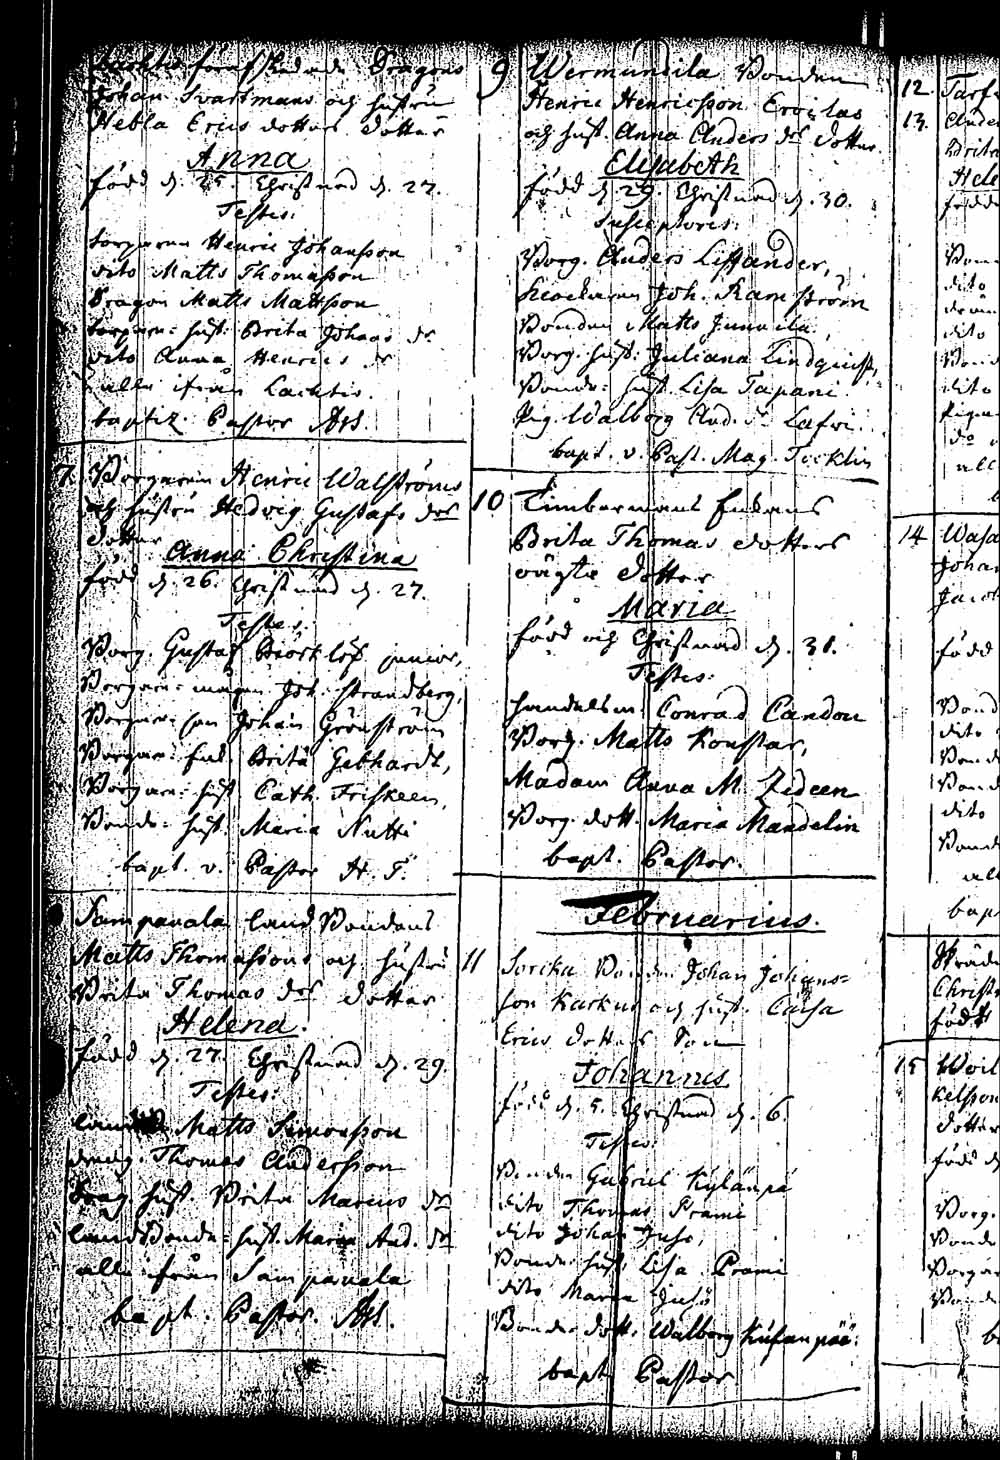 Johan Svartmans och hustru
Hebla Erics dotters dotter
Anna
född d. 25. Christnad d. 27.
Testes:
Borgaren Henric Johansson
dito Matts Thomasson
Dragon Matts Mattsson
Borgare: hust: Brita Johans dr
dito Anna Henrics dr
alla ifrån Lachtis.
baptiz. Pastor
7. Borgaren Henric Walströms
och hustru Hedvig Gustafs drs
dotter
Anna Christina
född d. 26. Christnad d. 27.
Testes:
Borg. Gustaf Biörklöf junior,
Borgare: mågen Joh. Strandberg,
Borgare: son Johan Grönström
Borgar: Enk. Brita Gebhardt,
Borgare: hust Cath. Friskeen,
Bonde: hust. Maria Nutti
bapt. v. Pastor H. F.
Sampanala land Bondens
Matts Thomassons och hustru
Brita Thomas drs dotter
Helena.
född d. 27. Christnad d. 29.
Testes:
Matts Simonsson
dräng. Thomas Andersson
Drag. hust Brita Marcus dr
landBonde: hust. Maria And. dr
alla ifrån Sampanala
bapt. Pastor.
9 Wermundila Bonden
Henric Henricsson Eroilas
och hust. Anna Anders drs dotter.
Elisabeth
född d. 29. Christnad d. 30.
Susceptores:
Borg. Anders Lissander,
Joh. Ramström
Bonden Matts Junnila
Borg. hust: Juliana Lindquist,
Bonde: hust Lisa Tapani
Pig. Walborg And. dr Lafri.
bapt. v. Past. Mag. Tocklin
10 Timbermans Enkans
Brita Thomas dotters
oägta dotter
Maria
född och Christnad d. 31.
Testes:
handelsm: Conrad Candou
Borg. Matts Konstar,
Madam Anna M. Zideen
Borg. dott. Maria Mandelin
bapt. Pastor.
Februarius.
11 Sorkka Bonden Johan Johans=
son Karkus och hust. Caisa
Erics dotters Son
Johannes
född d. 5. Christnad d. 6.
Testes:
Bonden Gabriel Kylänpä
dito Thomas Prami
dito Johan Juso,
Bonde: hust. Lisa Prami
dito Maria Juso
Bonde: dott. Walborg Kufanpää:
bapt Pastor
12.
13. Ander
Brita
Hele
född
Bond
dito
dito
Bond
dito
Pigan
dr
all
14 Wasa
Johan
Jacob
född
Bond
dito
Bond
Bond
dito
Bond
all
bapt
Christ
född
15
kelsson
dotter
född d
Borg.
Bonde
Borgar
Bonde
b